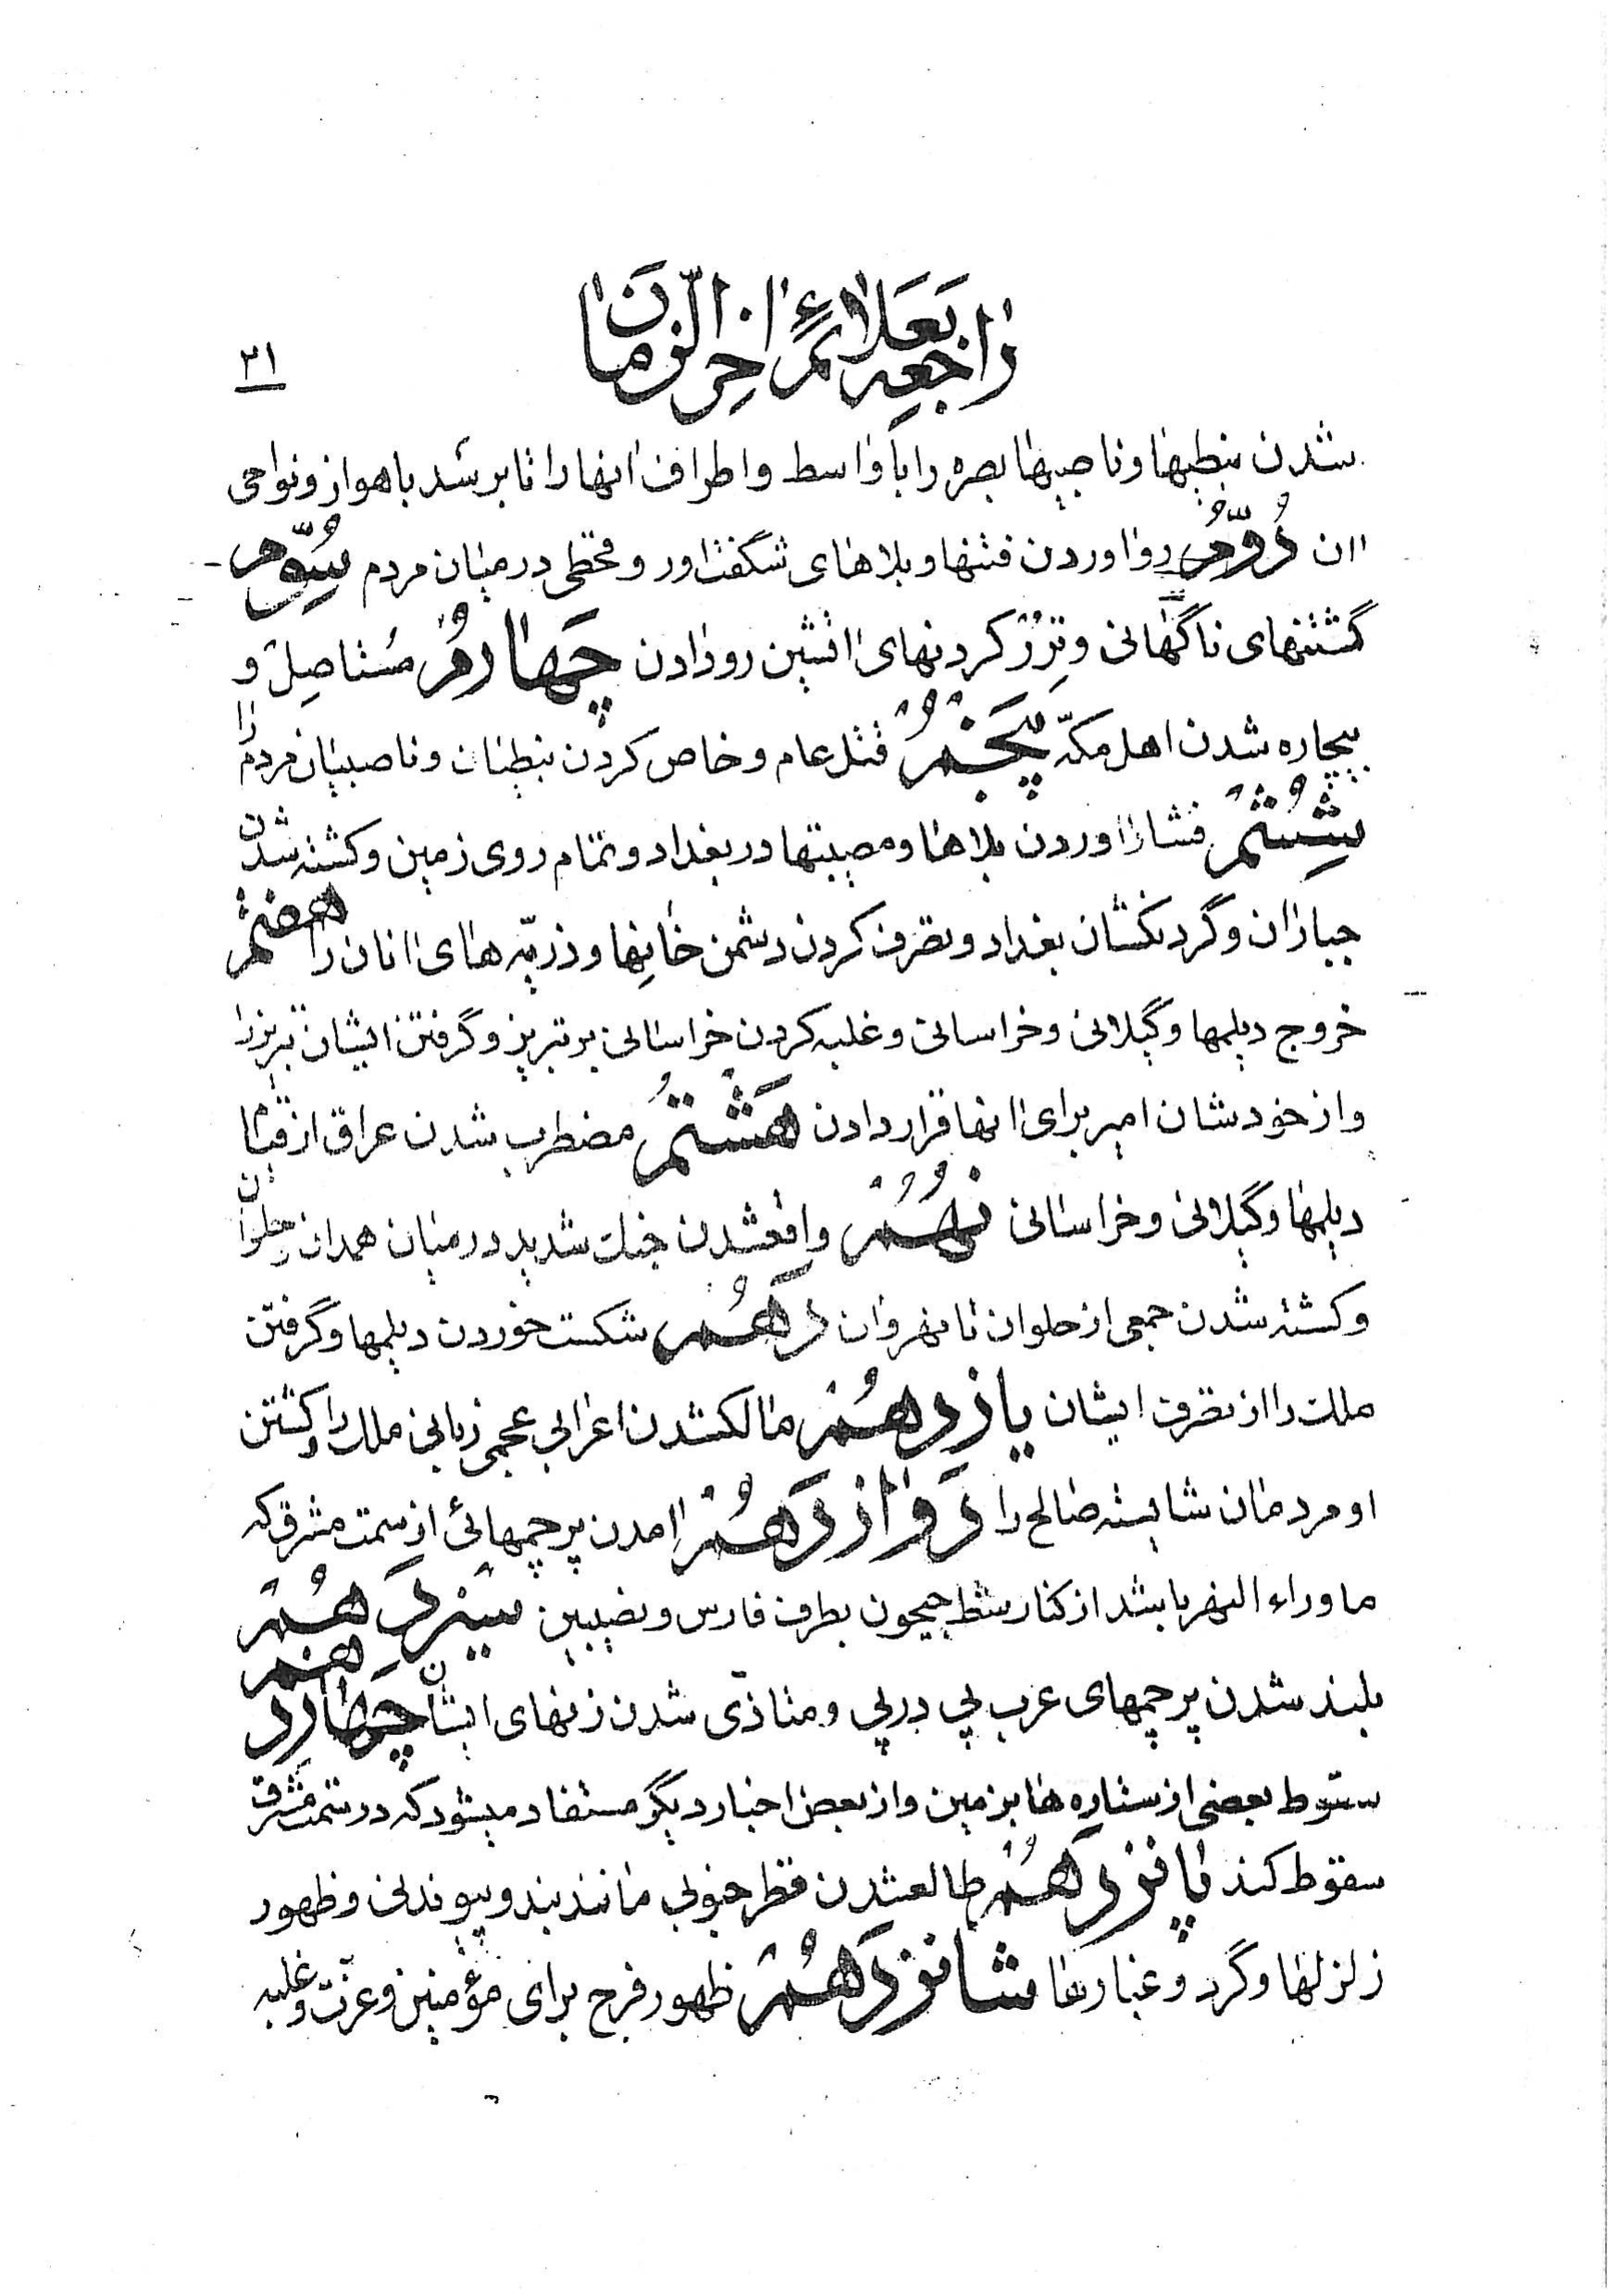 راجعه بعلائم اخر الزمان
۳۱
شدن نبطیها و ناصبیها بصره را با واسط و اطراف انها را تا برسد باهواز و نواحی
ان دُوّمُ روا وردن فتنها و بلاهای شگفت اور و قحطی در میان مردم سُوّمُ
گشتنهای ناگهانی و کردنهای اتشین رودادن چَهارُمُ مستاصل و
بیچاره شدن اهل مکّه پَنجُمُ قتل عام و خاص کردن نبطیان و ناصبیان مردم را
شِشُمُ فشار اوردن بلاها و مصیبتها در بغداد و تمام روی زمین و کشته شدن
جباران و گردنکشان بغداد و تصرف کردن دشمن خانها و ذریّه های انان را هفتم
خروج دیلمها و گیلانی و خراسانی و غلبه کردن خراسانی بر تبریز و گرفتن ایشان تبریز را
و از خودشان امیر برای انها قرار دادن هَشتُمُ مضطرب شدن عراق از قیام
دیلمها و گیلانی و خراسانی نُهُمُ واقعشدن جنک شدید در میان همدان و حلوان
و کشته شدن جمعی از حلوان تا نهروان دَهُمُ شکست خوردن دیلمها و گرفتن
ملک را از تصرف ایشان یازدهُمُ مالکشدن اعرابی عجمی زبانی ملک را و کشتن
او مردمان شایسته صالح را دَوازدَهُمُ امدن پرچمهائی از سمت مشرق که
ماوراء النهر باشد از کنار شط جیحون بطرف فارس و نصیبین سیزدَهُمُ
بلند شدن پرچمهای عرب پی در پی و متاذّی شدن زنهای ایشان چهاردهم
سقوط بعضی از ستاره ها بزمین و از بعض اخبار دیگر مستفاد میشود که در سمت مشرق
سقوط کند پانزدَهُمُ طالعشدن قطر جنوبی مانند بند و پیوندنی و ظهور
زلزلها و گرد و غبارها شانزدَهُمُ ظهور فرج برای مؤمنین و عزت و غلبه